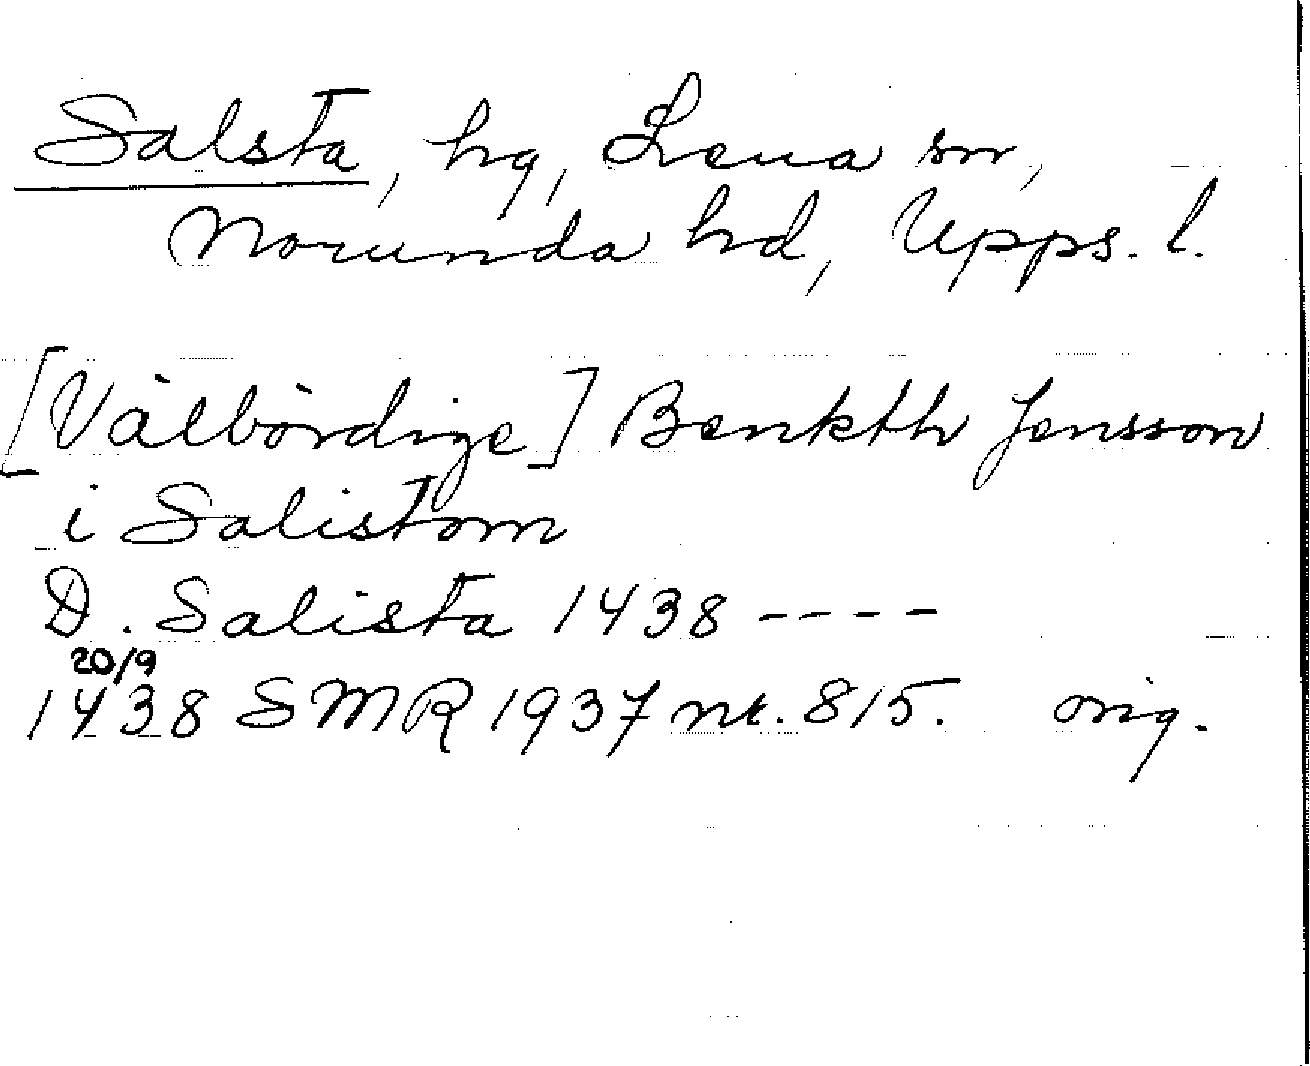 Salsta, hg, Lena sn,
Norunda hd, Upps. l.
[Välbördige] Benkth Jensson
i Salistom
D. Salista 1438 ----
20/9
1438 SMR 1937 nr. 815. orig.